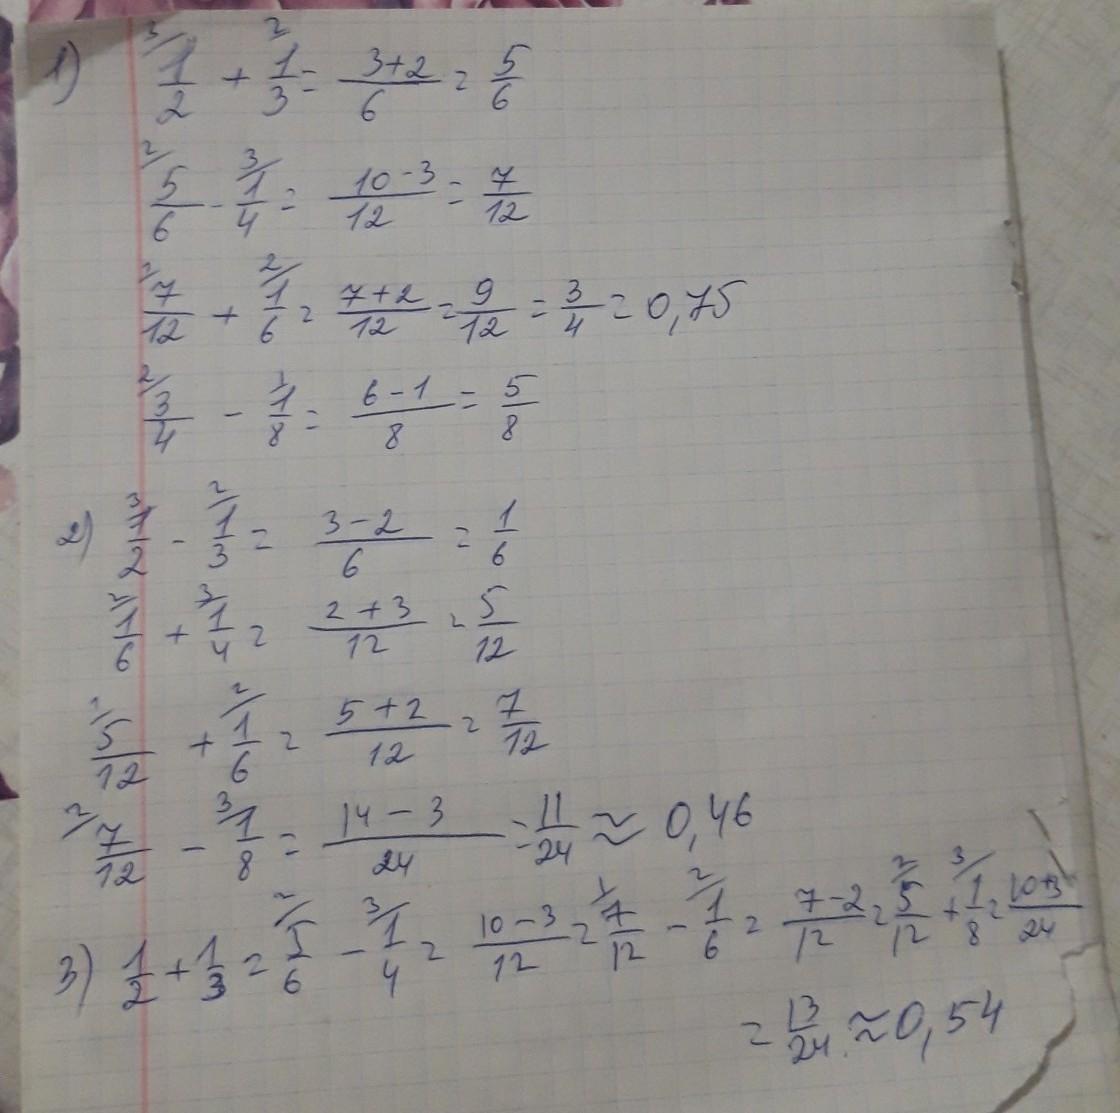 1) 3/ 1/2 + 2/ 1/3 = (3+2)/6 = 5/6
2/ 5/6 - 3/ 1/4 = (10-3)/12 = 7/12
7/12 + 2/ 1/6 = (7+2)/12 = 9/12 = 3/4 = 0,75
2/ 3/4 - 1/ 1/8 = (6-1)/8 = 5/8
2) 3/ 1/2 - 2/ 1/3 = (3-2)/6 = 1/6
2/ 1/6 + 3/ 1/4 = (2+3)/12 = 5/12
1/ 5/12 + 2/ 1/6 = (5+2)/12 = 7/12
2/ 7/12 - 3/ 1/8 = (14-3)/24 = 11/24 ≈ 0,46
3) 1/2 + 1/3 = 2/ 5/6 - 3/ 1/4 = (10-3)/12 = 1/ 7/12 - 2/ 1/6 = (7-2)/12 = 2/ 5/12 + 3/ 1/8 = (10+3)/24
= 13/24 ≈ 0,54